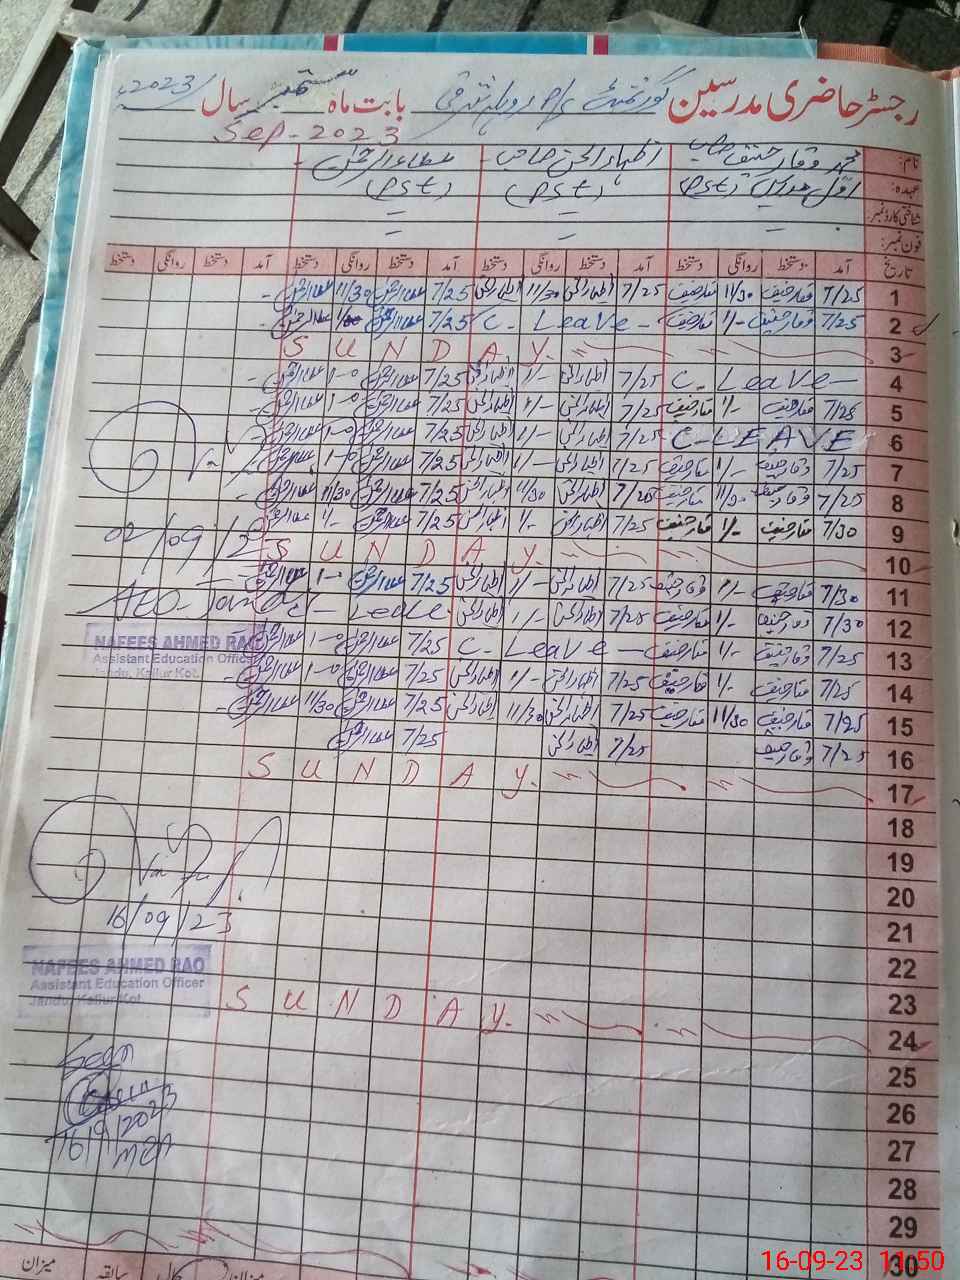 رجسٹر حاضری مدرسین گورنمنٹ P/S بابت ماہ ستمبر سال 2023ء
Sep-2023
نام: محمد وقار حنیف صاحب اظہار الحق صاحب عطاء الرحمن
عہدہ: اول مدرس (PST) (PST) (PST)
شناختی کارڈ نمبر:
فون نمبر:
تاریخ آمد دستخط روانگی دستخط آمد دستخط روانگی دستخط آمد دستخط روانگی دستخط آمد دستخط روانگی دستخط
1 7/25 وقار حنیف 11/30 وقار حنیف 7/25 اظہار الحق 11/30 اظہار الحق 7/25 عطاء الرحمن 11/30 عطاء الرحمن
2 7/25 وقار حنیف 1/- وقار حنیف C- Leave - 7/25 عطاء الرحمن عطاء الرحمن
3 SUNDAY.
4 C- Leave - 7/25 اظہار الحق 1/- اظہار الحق 7/25 عطاء الرحمن 1-0 عطاء الرحمن
5 7/25 وقار حنیف 1/- وقار حنیف 7/25 اظہار الحق 1/- اظہار الحق 7/25 عطاء الرحمن 1-0 عطاء الرحمن
6 C-LEAVE 7/25 اظہار الحق 1/- اظہار الحق 7/25 عطاء الرحمن 1-0 عطاء الرحمن
7 7/25 وقار حنیف 1/- وقار حنیف 7/25 اظہار الحق 1/- اظہار الحق 7/25 عطاء الرحمن 1-0 عطاء الرحمن
8 7/25 وقار حنیف 11/30 وقار حنیف 7/25 اظہار الحق 11/30 اظہار الحق 7/25 عطاء الرحمن 11/30 عطاء الرحمن
9 7/30 وقار حنیف 1/- وقار حنیف 7/25 اظہار الحق 1/- اظہار الحق 7/25 عطاء الرحمن 1/- عطاء الرحمن
02/09/23
10 SUNDAY.
11 7/30 وقار حنیف 1/- وقار حنیف 7/25 اظہار الحق 1/- اظہار الحق 7/25 عطاء الرحمن 1-0 عطاء الرحمن
12 7/30 وقار حنیف 1/- وقار حنیف 7/25 اظہار الحق 1/- اظہار الحق
13 7/25 وقار حنیف 1/- وقار حنیف C- Leave - 7/25 عطاء الرحمن 1-0 عطاء الرحمن
NAFEES AHMED RAO
Assistant Education Officer
Jandu, Kallur Kot.
14 7/25 وقار حنیف 1/- وقار حنیف 7/25 اظہار الحق 1/- اظہار الحق 7/25 عطاء الرحمن 1-0 عطاء الرحمن
15 7/25 وقار حنیف 11/30 وقار حنیف 7/25 اظہار الحق 11/30 اظہار الحق 7/25 عطاء الرحمن 11/30 عطاء الرحمن
16 7/25 وقار حنیف 7/25 اظہار الحق 7/25 عطاء الرحمن
17 SUNDAY.
18
19
20
21
16/09/23
22
NAFEES AHMED RAO
Assistant Education Officer
Jandu, Kallur Kot.
23
24 SUNDAY.
25
Seen
26
27
16/9/2023
MEA
28
29
30
میزان سابقہ میزان
16-09-23 11:50